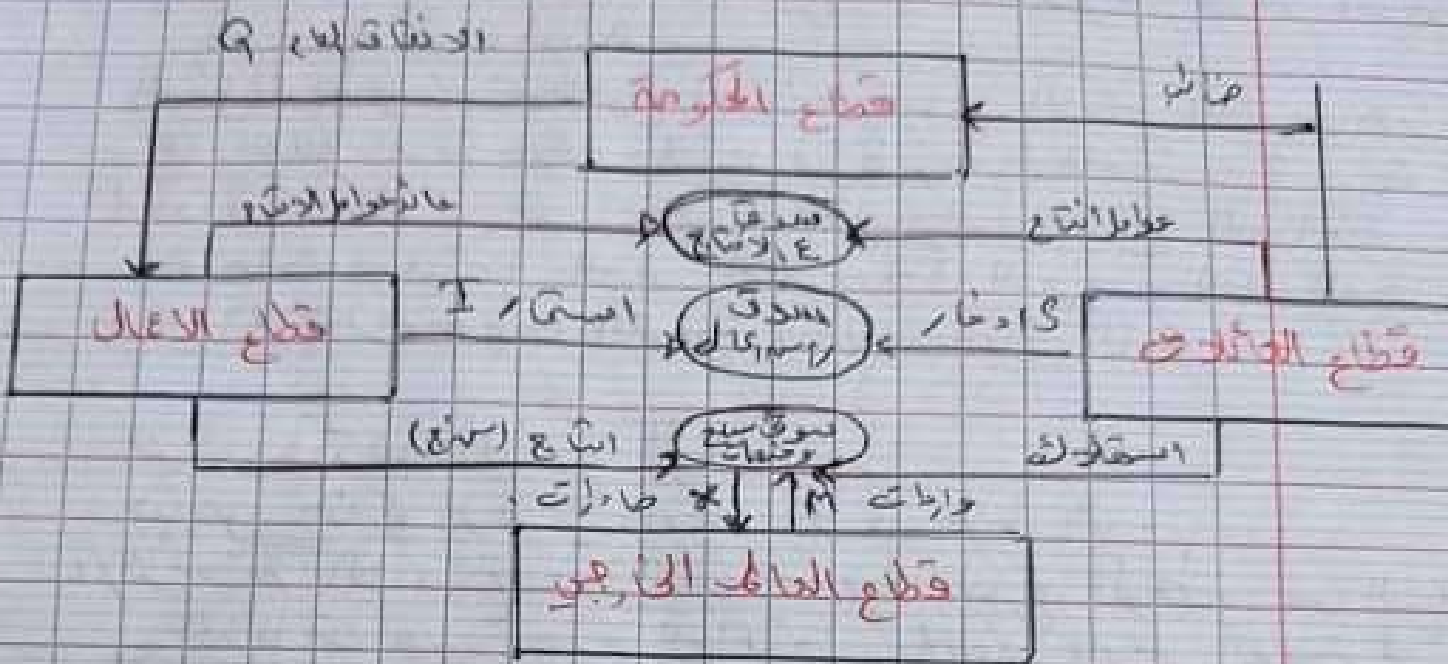 الانفاق العام G
قطاع الحكومة
ضرائب
عائد عوامل الانتاج
سوق
ع الانتاج
عوامل انتاج
قطاع الاعمال
استثمار I
سوق
رؤوس اموال
ادخار S
قطاع العائلات
انتاج (سلع)
سوق سلع
وخدمات
استهلاك
صادرات X
M واردات
قطاع العالم الخارجي